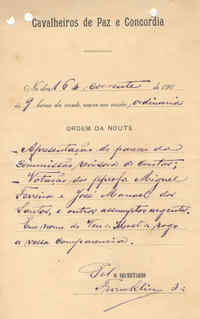 Cavalheiros de Paz e Concordia
No dia 16 do corrente de 191
ás 9 horas da noute, haverá sessão ordinaria
ORDEM DA NOUTE
- Apresentação do parecer da
commissão revisora de contas;
- Votação do profº Miguel
Ferreira e José Manoel dos
Santos, e outros assumptos urgentes.
Em nome do Ven∴ Mest∴ rogo
a vossa comparencia.
Pel O SECRETARIO
Franklin